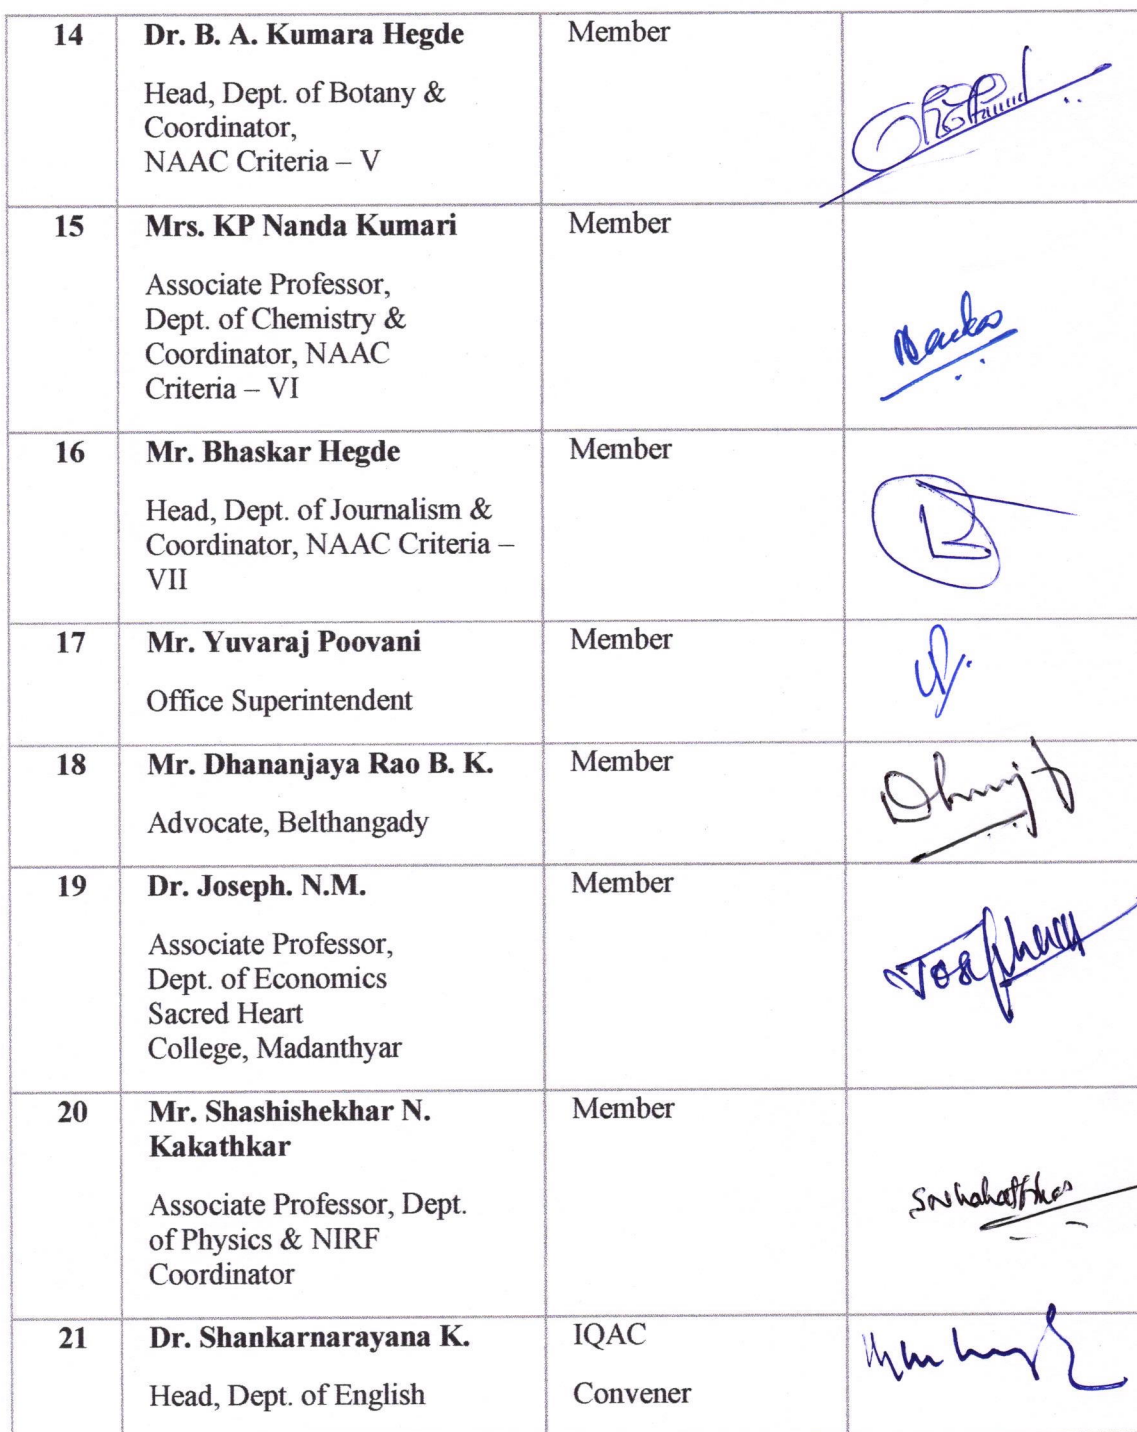 14 Dr. B. A. Kumara Hegde Member
Head, Dept. of Botany &
Coordinator,
NAAC Criteria – V
15 Mrs. KP Nanda Kumari Member
Associate Professor,
Dept. of Chemistry &
Coordinator, NAAC
Criteria – VI
16 Mr. Bhaskar Hegde Member
Head, Dept. of Journalism &
Coordinator, NAAC Criteria –
VII
17 Mr. Yuvaraj Poovani Member
Office Superintendent
18 Mr. Dhananjaya Rao B. K. Member
Advocate, Belthangady
19 Dr. Joseph. N.M. Member
Associate Professor,
Dept. of Economics
Sacred Heart
College, Madanthyar
20 Mr. Shashishekhar N. Member
Kakathkar
Associate Professor, Dept.
of Physics & NIRF
Coordinator
21 Dr. Shankarnarayana K. IQAC
Head, Dept. of English Convener